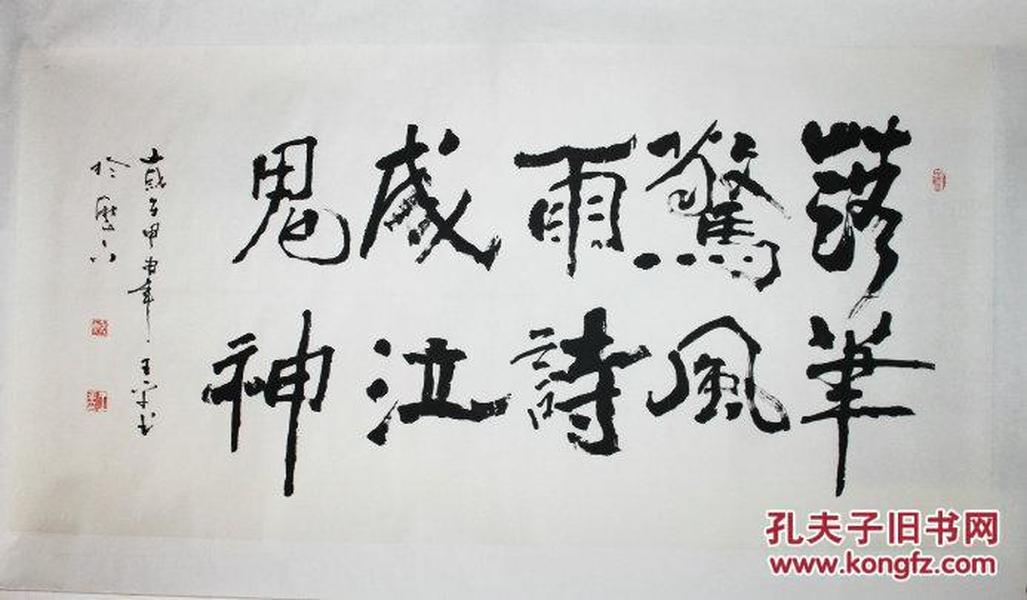 落筆
驚風
雨詩
成泣
鬼神
歲百甲申年
孔夫子旧书网
www.kongfz.com